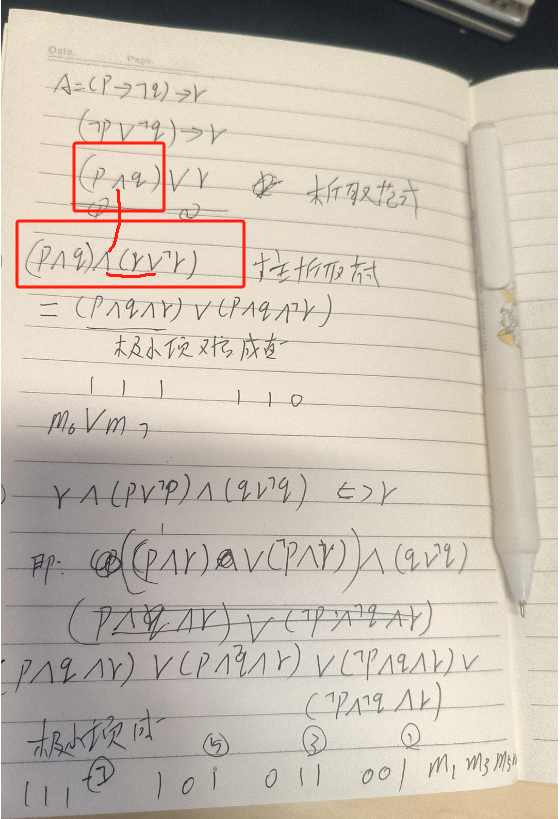 Date.
Page.
A=(P→¬q)→r
(¬P∨¬q)→r
(P∧q)∨r 析取范式
① ②
(P∧q)∧(r∨¬r) 主析取
=(P∧q∧r)∨(P∧q∧¬r)
极小项 成真
1 1 1 1 1 0
m₆∨m₇
r∧(p∨¬p)∧(q∨¬q) <=>r
即: ((P∧r)∨(¬P∧r))∧(q∨¬q)
(P∧q∧r)∨(¬P∧¬q∧r)
(P∧q∧r)∨(P∧¬q∧r)∨(¬P∧q∧r)∨
(¬P∧¬q∧r)
极小项
⑦ ⑤ ③ ①
111 101 011 001 m₁ m₃ m₅